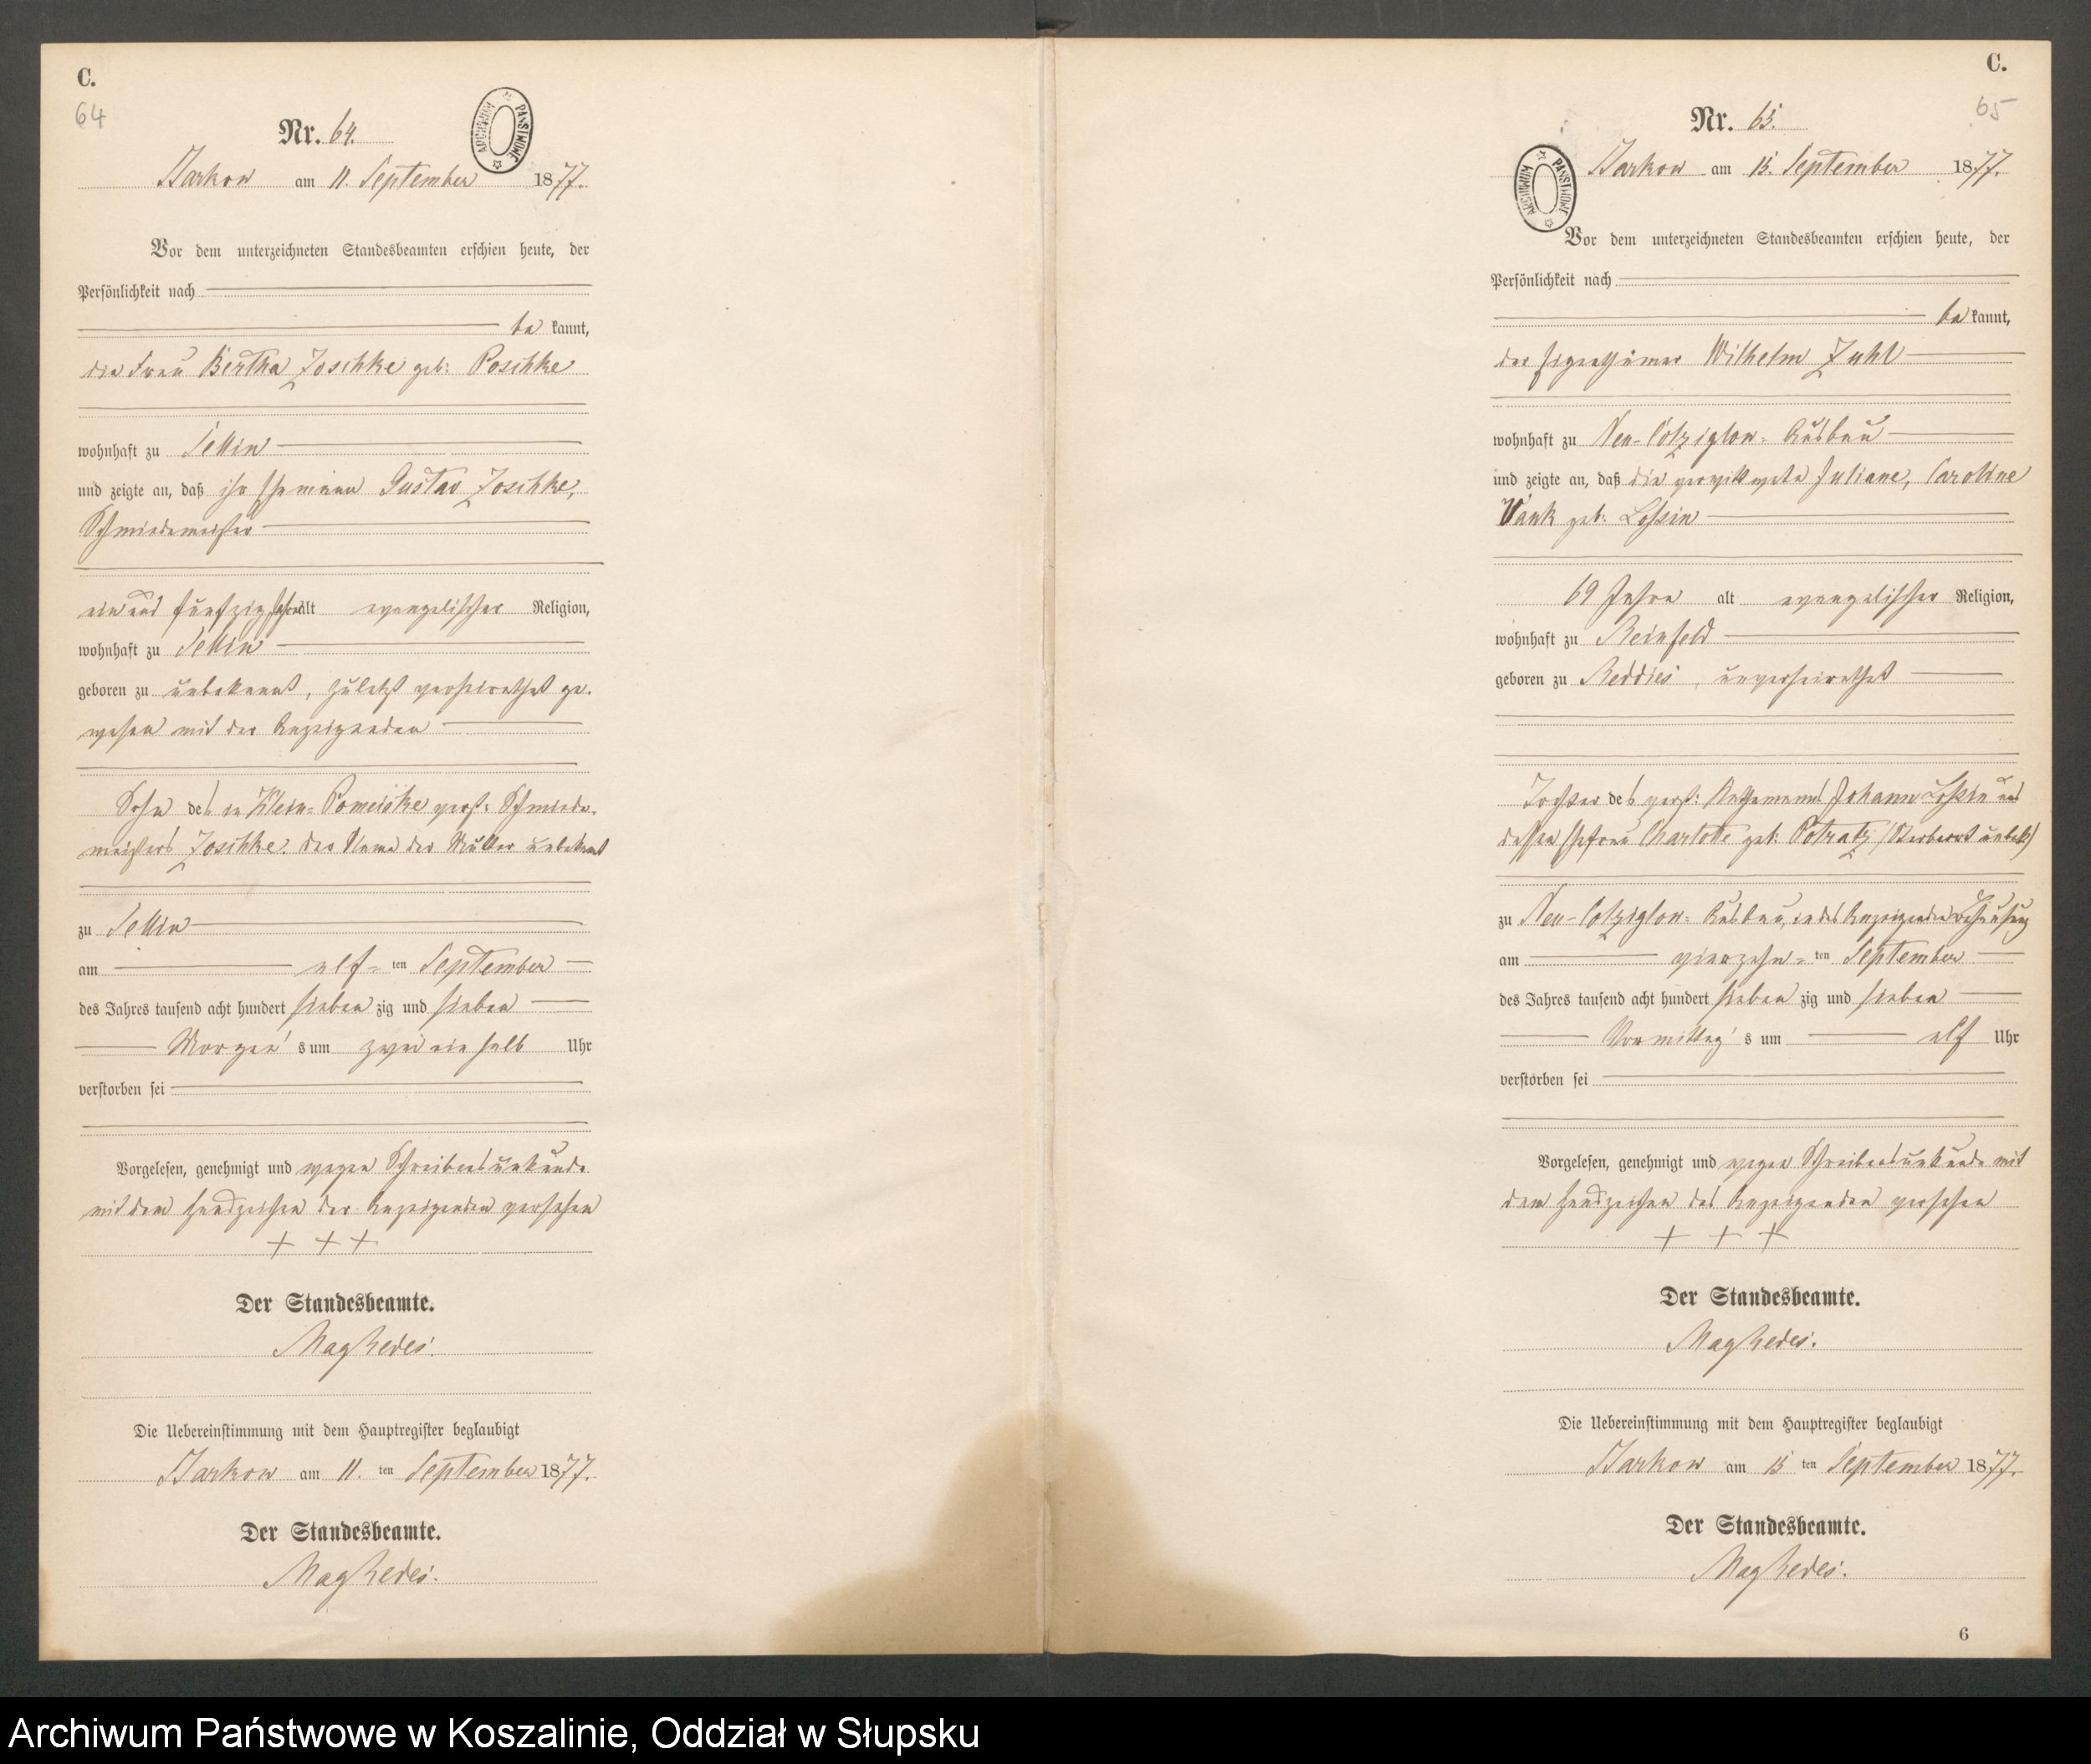 C.
64
Nr. 64.
ARCHIWUM PAŃSTWOWE
Barkow am 11. September 1877.
Vor dem unterzeichneten Standesbeamten erschien heute, der
Persönlichkeit nach
be kannt,
die Frau Bertha Zoschke geb: Poschke
wohnhaft zu Tellin
und zeigte an, daß ihr Ehemann Gustav Zoschke,
Schmiedemeister
ein und fünfzig Jahre alt evangelischer Religion,
wohnhaft zu Tellin
geboren zu unbekannt, zuletzt verheirathet ge-
wesen mit der Anzeigenden
Sohn des in Klein-Pomeiske verst: Schmiede-
meisters Zoschke. Der Name der Mutter unbekannt
zu Tellin
am elf-ten September
des Jahres tausend acht hundert sieben zig und sieben
Morgen's um zwei ein halb Uhr
verstorben sei
Vorgelesen, genehmigt und wegen Schreibensunkunde
mit dem Handzeichen der Anzeigenden versehen
+ + +
Der Standesbeamte.
Die Uebereinstimmung mit dem Hauptregister beglaubigt
Barkow am 11. ten September 1877.
Der Standesbeamte.
C.
65
Nr. 65.
ARCHIWUM PAŃSTWOWE
Barkow am 15. September 1877.
Vor dem unterzeichneten Standesbeamten erschien heute, der
Persönlichkeit nach
be kannt,
der Eigenthümer Wilhelm Zuhl
wohnhaft zu Neu-Colziglow-Ausbau
und zeigte an, daß die verwittwete Juliane, Caroline
geb: Lossin
69 Jahre alt evangelischer Religion,
wohnhaft zu Reinfeld
geboren zu Reddies, unverheirathet
Tochter des verst: Johann Lossin und
dessen Ehefrau Charlotte geb: Potratz (Sterbeort unbek)
zu Neu-Colziglow-Ausbau, in des Anzeigenden Behausung
am vierzehn-ten September
des Jahres tausend acht hundert sieben zig und sieben
Vormittag's um elf Uhr
verstorben sei
Vorgelesen, genehmigt und wegen Schreibensunkunde mit
dem Handzeichen des Anzeigenden versehen
+ + +
Der Standesbeamte.
Die Uebereinstimmung mit dem Hauptregister beglaubigt
Barkow am 15 ten September 1877.
Der Standesbeamte.
6
Archiwum Państwowe w Koszalinie, Oddział w Słupsku